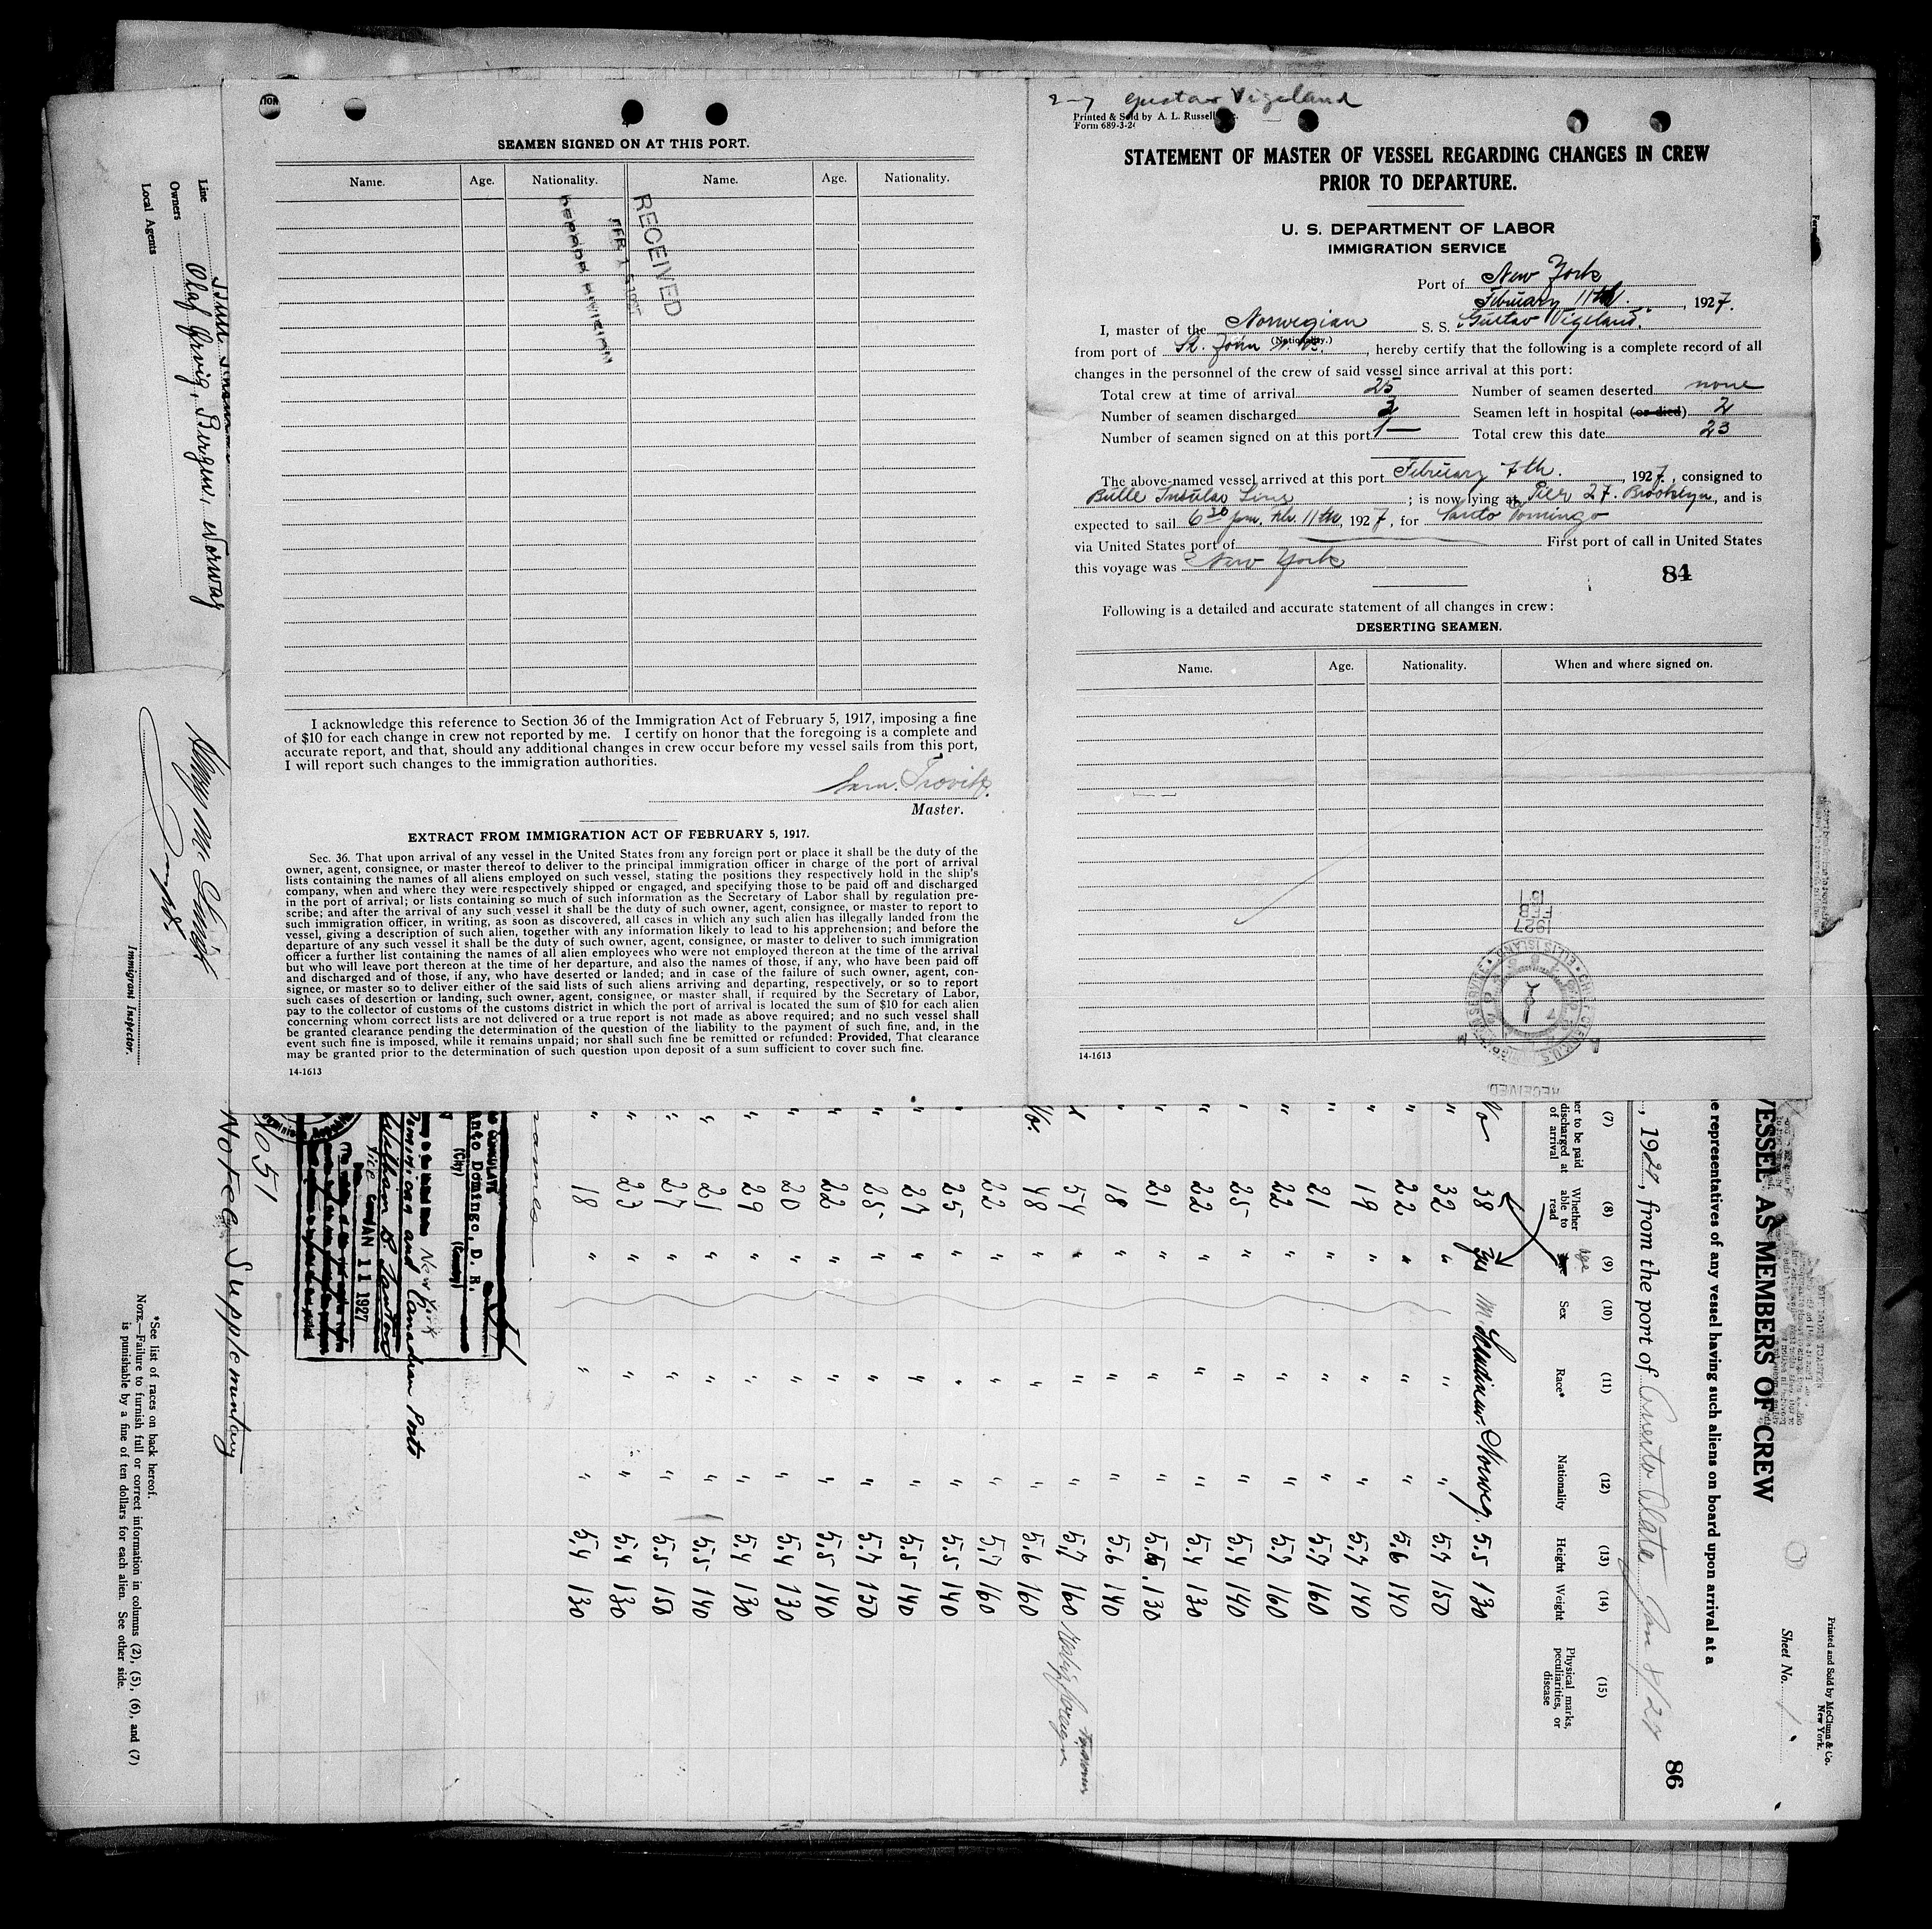 SEAMEN SIGNED ON AT THIS PORT.
Name. Age. Nationality. Name. Age. Nationality.
RECEIVED
FEB 15 1927
RECORD DIVISION
I acknowledge this reference to Section 36 of the Immigration Act of February 5, 1917, imposing a fine
of $10 for each change in crew not reported by me. I certify on honor that the foregoing is a complete and
accurate report, and that, should any additional changes in crew occur before my vessel sails from this port,
I will report such changes to the immigration authorities.
Master.
EXTRACT FROM IMMIGRATION ACT OF FEBRUARY 5, 1917.
Sec. 36. That upon arrival of any vessel in the United States from any foreign port or place it shall be the duty of the
owner, agent, consignee, or master thereof to deliver to the principal immigration officer in charge of the port of arrival
lists containing the names of all aliens employed on such vessel, stating the positions they respectively hold in the ship's
company, when and where they were respectively shipped or engaged, and specifying those to be paid off and discharged
in the port of arrival; or lists containing so much of such information as the Secretary of Labor shall by regulation pre-
scribe; and after the arrival of any such vessel it shall be the duty of such owner, agent, consignee, or master to report to
such immigration officer, in writing, as soon as discovered, all cases in which any such alien has illegally landed from the
vessel, giving a description of such alien, together with any information likely to lead to his apprehension; and before the
departure of any such vessel it shall be the duty of such owner, agent, consignee, or master to deliver to such immigration
officer a further list containing the names of all alien employees who were not employed thereon at the time of the arrival
but who will leave port thereon at the time of her departure, and also the names of those, if any, who have been paid off
and discharged and of those, if any, who have deserted or landed; and in case of the failure of such owner, agent, con-
signee, or master so to deliver either of the said lists of such aliens arriving and departing, respectively, or so to report
such cases of desertion or landing, such owner, agent, consignee, or master shall, if required by the Secretary of Labor,
pay to the collector of customs of the customs district in which the port of arrival is located the sum of $10 for each alien
concerning whom correct lists are not delivered or a true report is not made as above required; and no such vessel shall
be granted clearance pending the determination of the question of the liability to the payment of such fine, and, in the
event such fine is imposed, while it remains unpaid; nor shall such fine be remitted or refunded: Provided, That clearance
may be granted prior to the determination of such question upon deposit of a sum sufficient to cover such fine.
14-1613
2-7 Gustav Vigeland
Printed & Sold by A. L. Russell
Form 689-3-26
STATEMENT OF MASTER OF VESSEL REGARDING CHANGES IN CREW
PRIOR TO DEPARTURE.
U. S. DEPARTMENT OF LABOR
IMMIGRATION SERVICE
Port of New York
February 11th, 1927.
I, master of the Norwegian S. S. Gustav Vigeland.
(Nationality.)
from port of St. John N. B., hereby certify that the following is a complete record of all
changes in the personnel of the crew of said vessel since arrival at this port:
Total crew at time of arrival 25 Number of seamen deserted none
Number of seamen discharged Seamen left in hospital (or died) 2
Number of seamen signed on at this port 1 Total crew this date 23
The above-named vessel arrived at this port February 7th. 1927, consigned to
Bulle Insular Line; is now lying at Pier 27. Brooklyn, and is
expected to sail 6 30 pm, Feb. 11th, 1927, for Santo Domingo
via United States port of First port of call in United States
this voyage was New York
84
Following is a detailed and accurate statement of all changes in crew:
DESERTING SEAMEN.
Name. Age. Nationality. When and where signed on.
1927
FEB
15
14-1613
RECEIVED
Line
Owners Olaf Orvig, Bergen, Norway
Local Agents
Immigrant Inspector.
Printed and Sold by McClunn & Co.
New York.
Sheet No. 1
86
VESSEL AS MEMBERS OF CREW
representatives of any vessel having such aliens on board upon arrival at a
, 1927, from the port of Puerto Plata Jan 8/27
(7) (8) (9) (10) (11) (12) (13) (14) (15)
her to be paid discharged at of arrival
Whether able to read
age
Sex
Race*
Nationality
Height
Weight
Physical marks, peculiarities, or disease
No 38 Yes M Scandinav. Norweg. 5.5 130
" 32 " " " 5.7 150
" 22 " " " 5.6 140
" 19 " " " 5.7 140
" 21 " " " 5.7 160
" 22 " " " 5.7 160
" 25 " " " 5.4 140
" 22 " " " 5.4 130
" 21 " " " 5.6 130
" 18 " " " 5.6 140
54 " " " 5.7 160
No. 48 " " " 5.6 160
" 22 " " " 5.7 160
" 25 " " " 5.5 140
" 27 " " " 5.5 140
" 25 " " " 5.7 150
" 22 " " " 5.5 140
" 20 " " " 5.4 130
" 29 " " " 5.4 130
" 21 " " " 5.5 140
" 27 " " " 5.5 150
" 23 " " " 5.4 130
" 18 " " " 5.4 130
names
CONSULATE
Santo Domingo, D. R.
(City) (Country)
New York
Dominican and Canadian Ports
William B. Lawton
Vice Consul
JAN 11 1927
No Fee Supplementary
*See list of races on back hereof.
NOTE.—Failure to furnish full or correct information in columns (2), (5), (6), and (7)
is punishable by a fine of ten dollars for each alien. See other side.